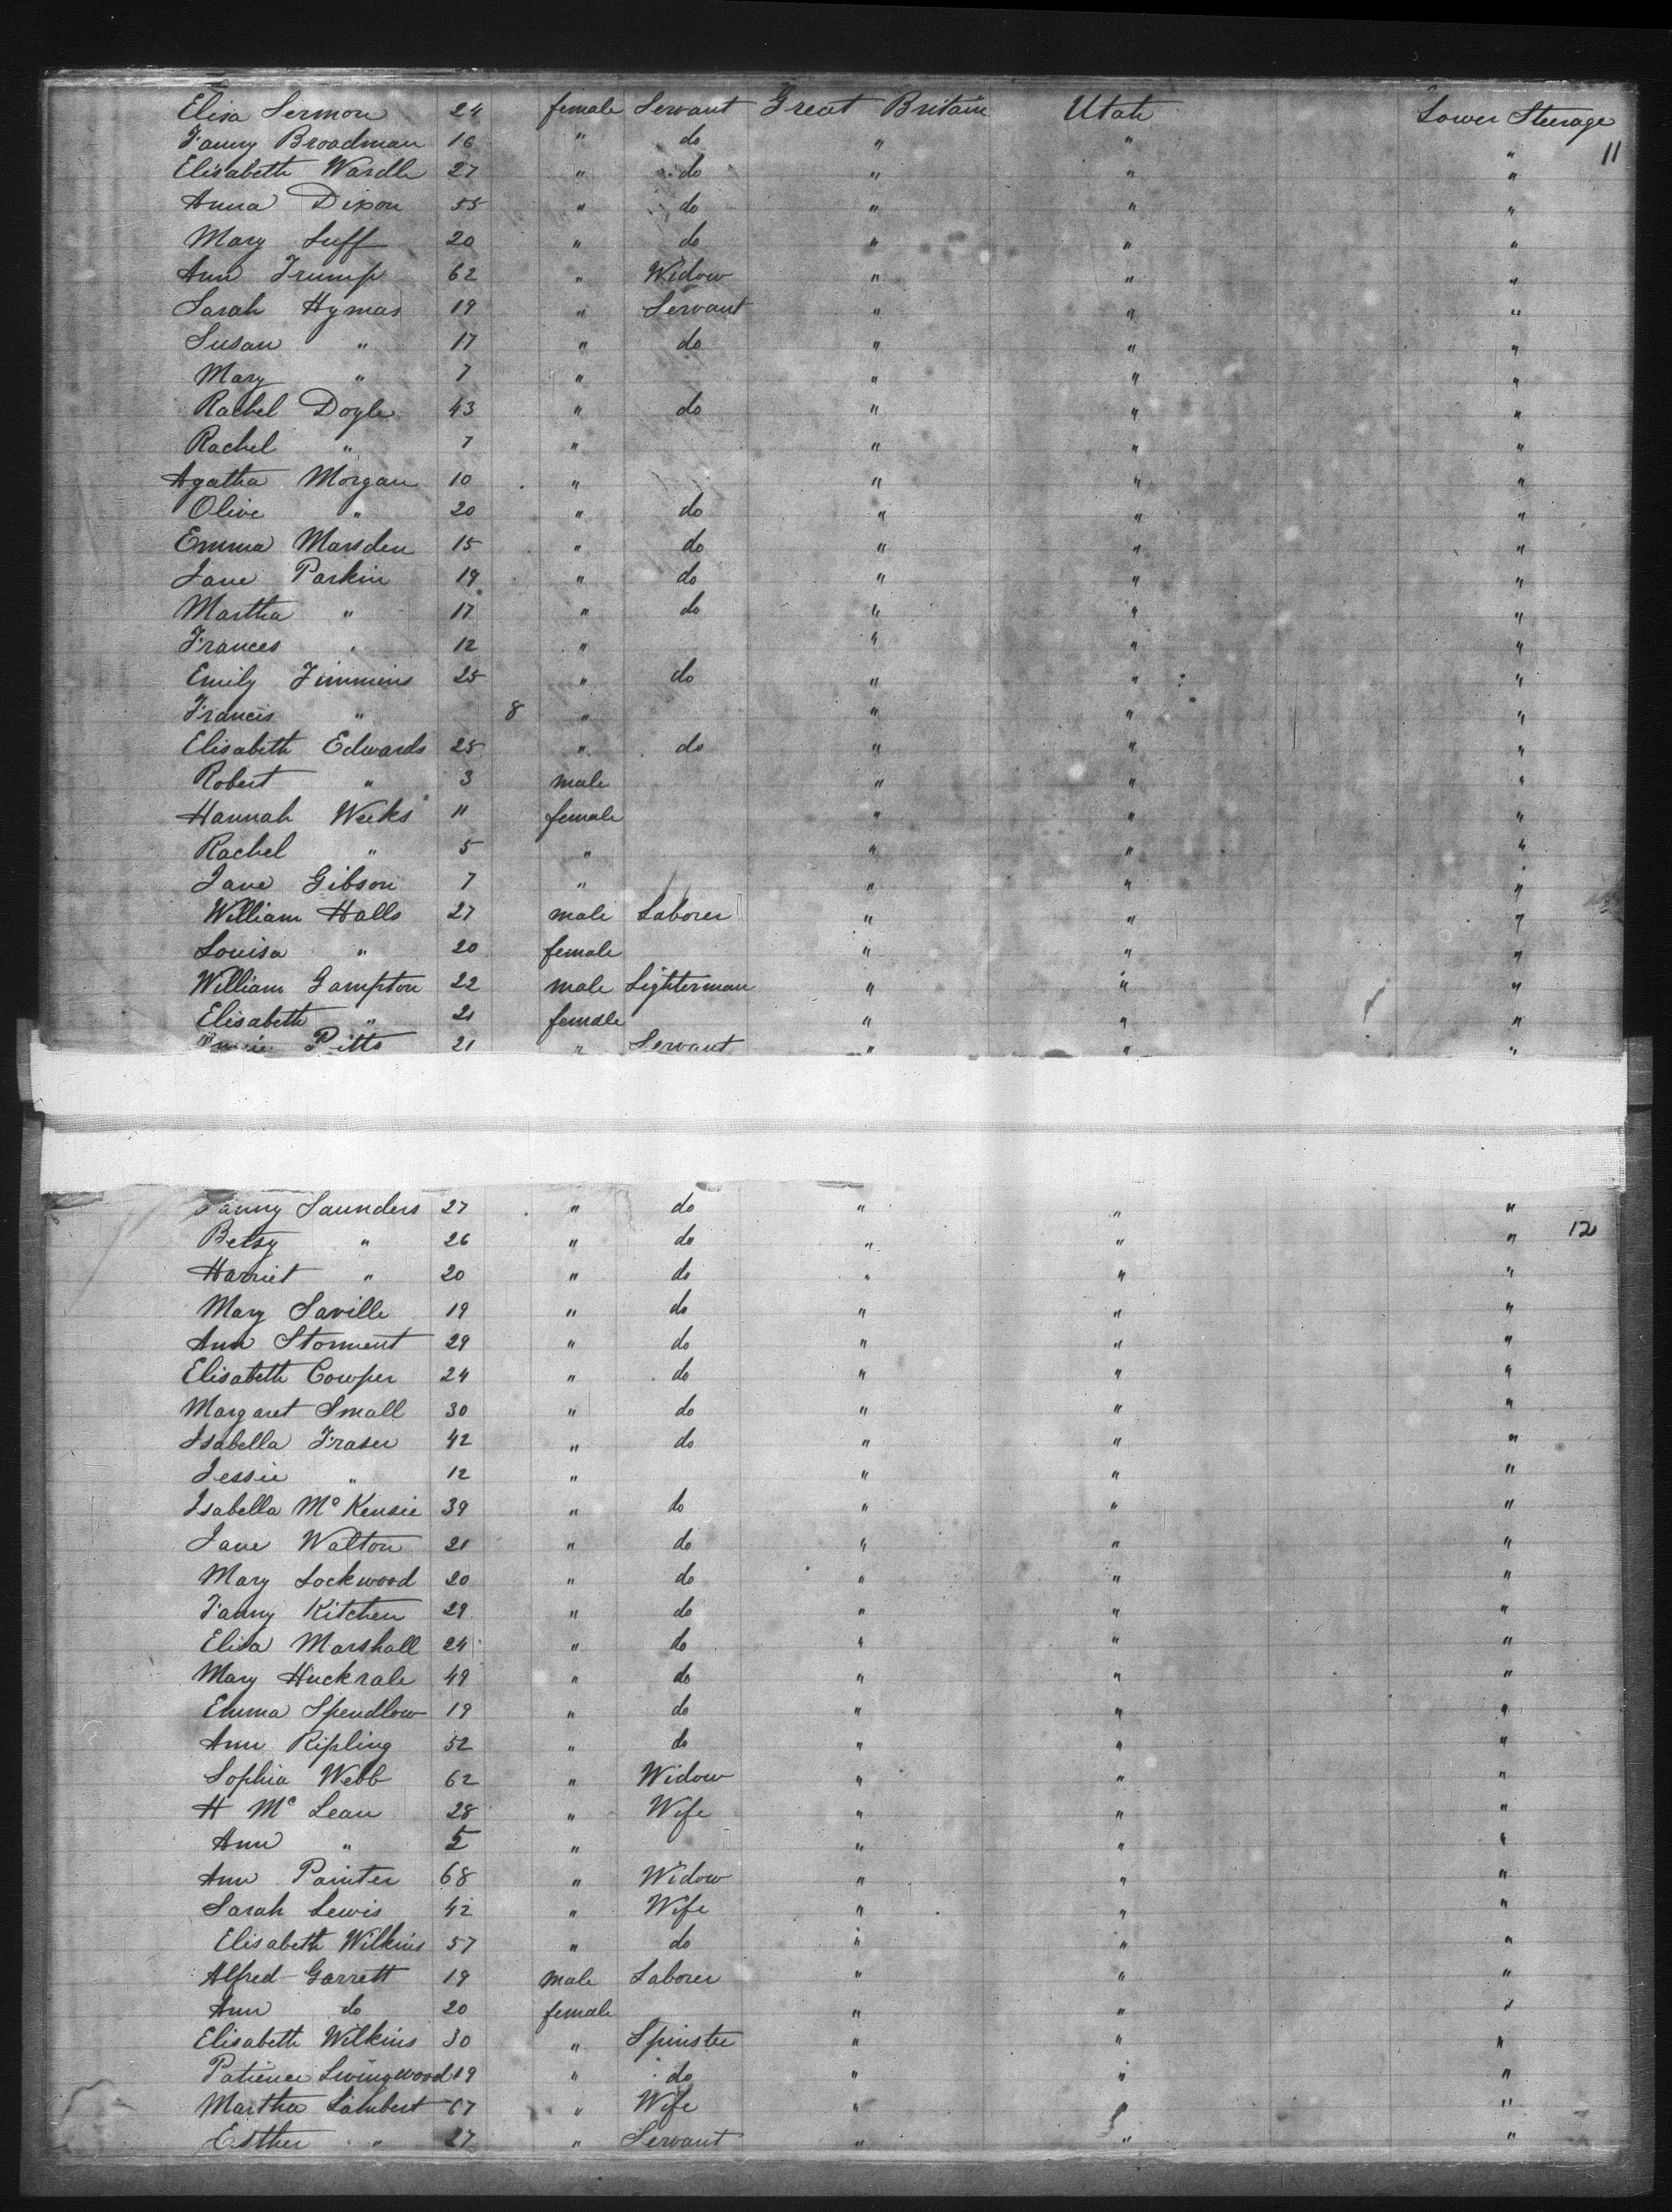 Elisa Sermon 24 female Servant Great Britain Utah Lower Steerage
11
Fanny Broadman 16 " do " " "
Elisabeth Wardle 27 " do " " "
Anna Dixon 55 " do " " "
Mary Luff 20 " do " " "
Ann Trump 62 " Widow " " "
Sarah Hymas 19 " Servant " " "
Susan " 17 " do " " "
Mary " 7 " " " "
Rachel Doyle 43 " do " " "
Rachel " 7 " " " "
Agatha Morgan 10 " " " "
Olive " 20 " do " " "
Emma Marsden 15 " do " " "
Jane Parkin 19 " do " " "
Martha " 17 " do " " "
Frances " 12 " " " "
Emily Timmins 25 " do " " "
Francis " 8 " " " "
Elisabeth Edwards 25 " do " " "
Robert " 3 male " " "
Hannah Weeks 11 female " " "
Rachel " 5 " " " "
Jane Gibson 7 " " " "
William Halls 27 male Laborer " " "
Louisa " 20 female " " "
William Gampton 22 male Lighterman " " "
Elisabeth " 21 female " " "
Pitts 21 " Servant " " "
Fanny Saunders 27 " do " " "
12
Betsy " 26 " do " " "
Harriet " 20 " do " " "
Mary Saville 19 " do " " "
Ann Storment 29 " do " " "
Elisabeth Cowper 24 " do " " "
Margaret Small 30 " do " " "
Isabella Fraser 42 " do " " "
Jessie " 12 " " " "
Isabella McKensie 39 " do " " "
Jane Walton 21 " do " " "
Mary Lockwood 20 " do " " "
Fanny Kitchen 29 " do " " "
Elisa Marshall 24 " do " " "
Mary Huckrale 49 " do " " "
Emma Spendlow 19 " do " " "
Ann Ripling 52 " do " " "
Sophia Webb 62 " Widow " " "
H McLean 28 " Wife " " "
Ann " 5 " " " "
Ann Painter 68 " Widow " " "
Sarah Lewis 42 " Wife " " "
Elisabeth Wilkins 57 " do " " "
Alfred Garrett 19 male Laborer " " "
Ann do 20 female " " "
Elisabeth Wilkins 30 " Spinster " " "
Patience 19 " do " " "
Martha Lambert 67 " Wife " " "
Esther " 27 " Servant " " "